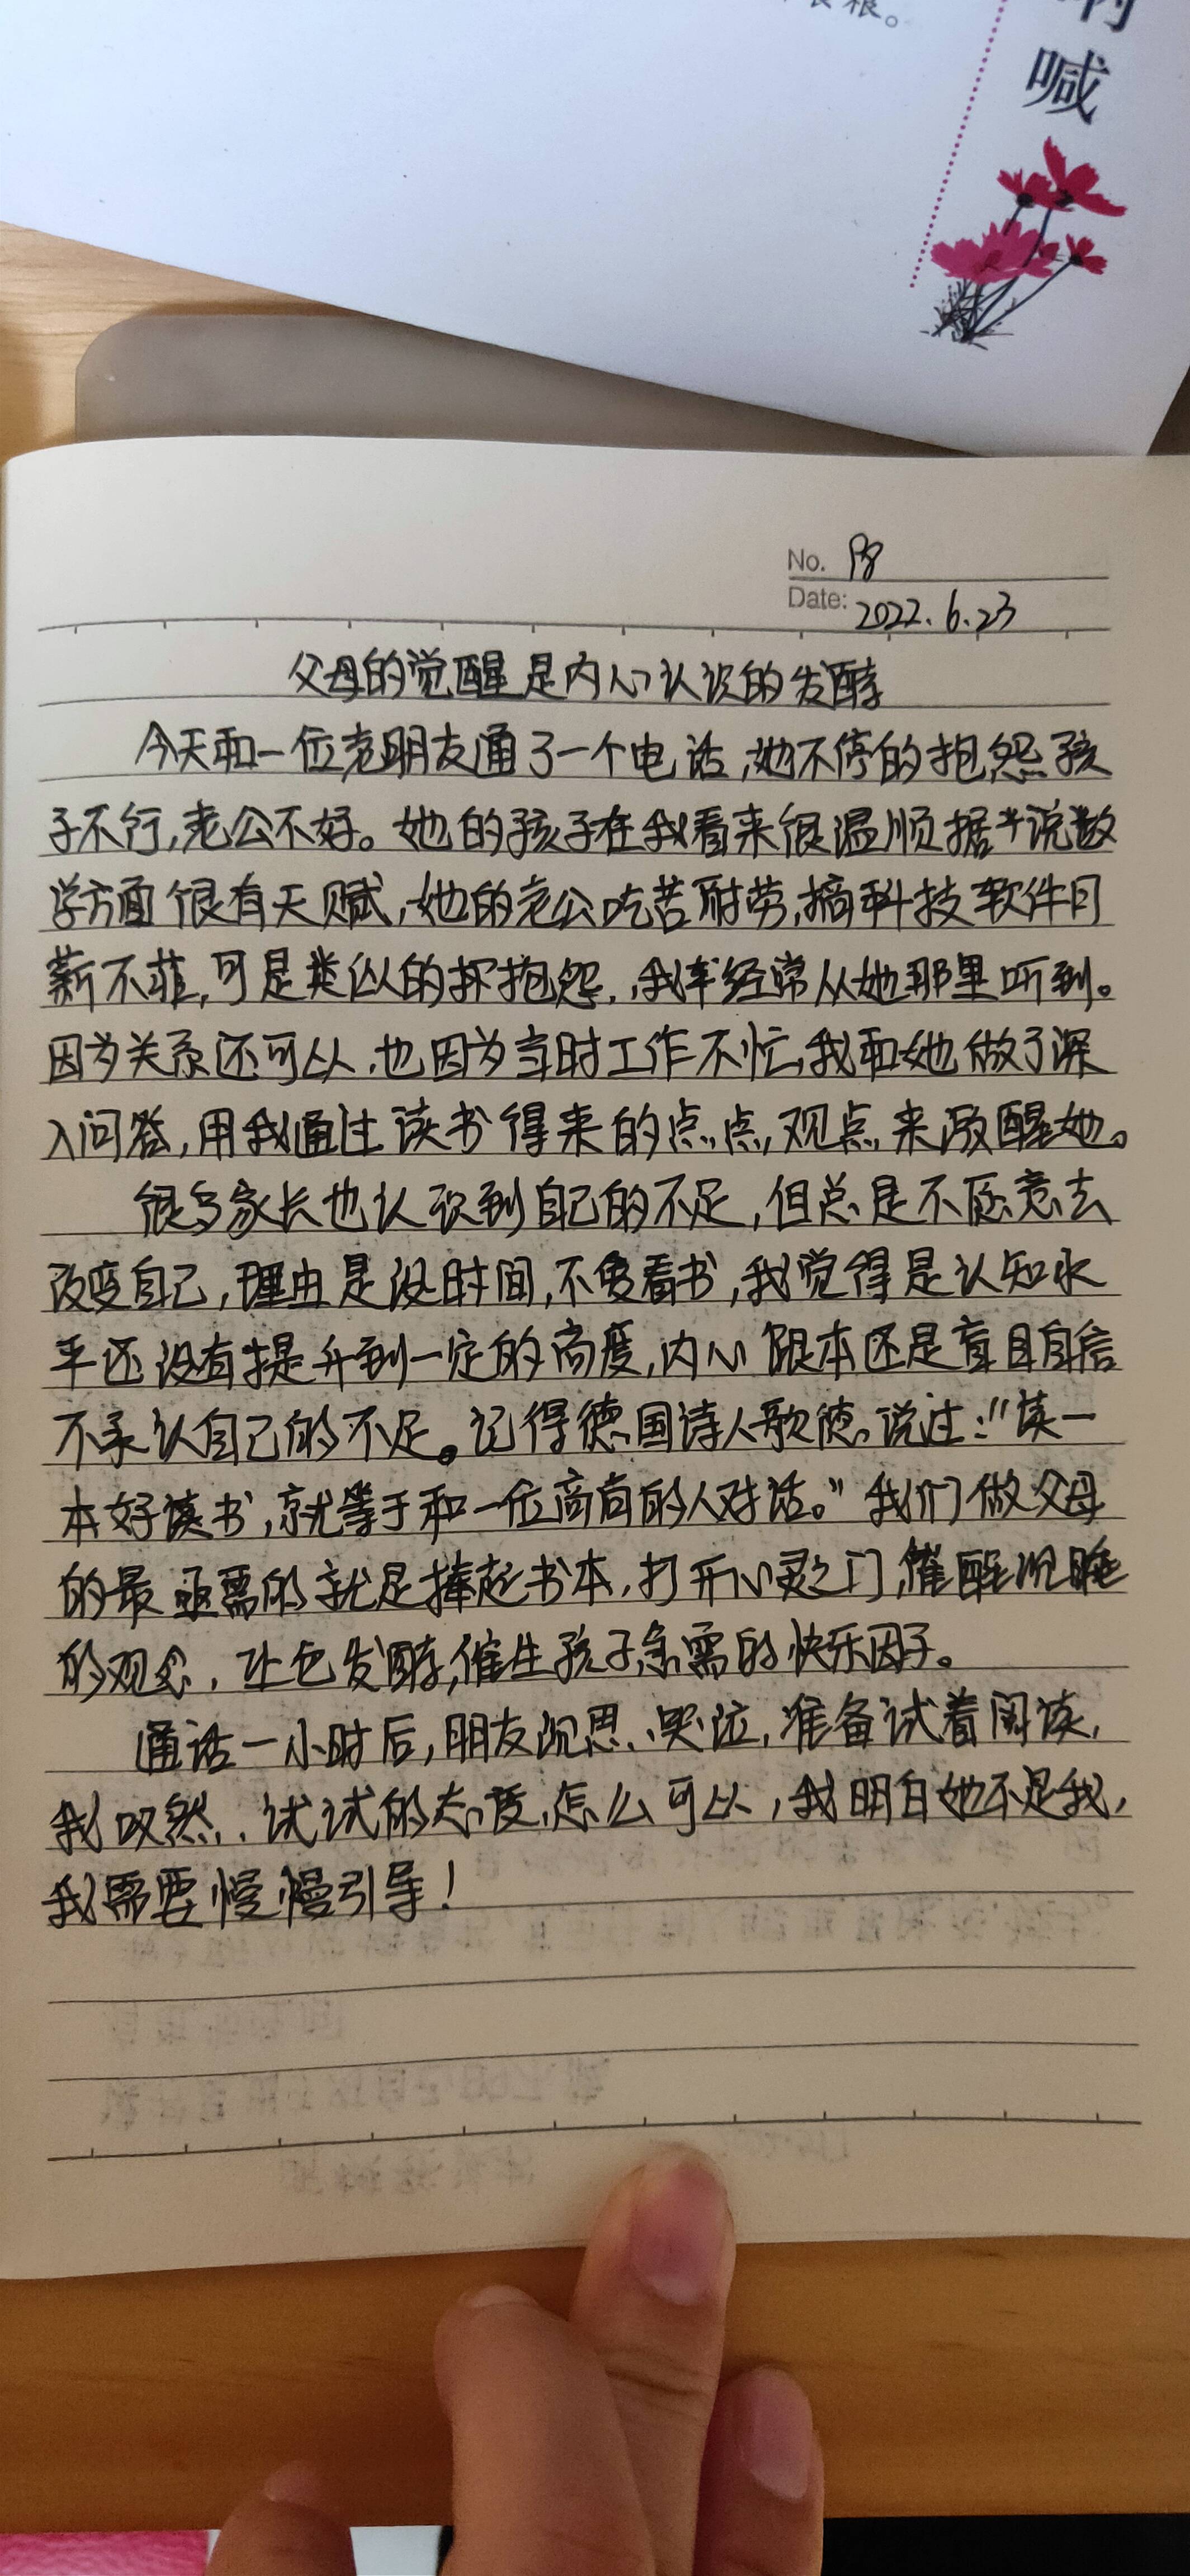 喊
No. P8
Date: 2022.6.23
父母的觉醒是内心认识的发酵
今天和一位老朋友通了一个电话,她不停的抱怨孩
子不行,老公不好。她的孩子在我看来很温顺据说数
学方面很有天赋,她的老公吃苦耐劳,搞科技软件月
薪不菲,可是类似的抱怨,我经常从她那里听到。
因为关系还可以,也因为当时工作不忙,我和她做了深
入问答,用我通过读书得来的点点,观点来激醒她。
很多家长也认识到自己的不足,但总是不愿意去
改变自己,理由是没时间,不爱看书,我觉得是认知水
平还没有提升到一定的高度,内心跟本还是盲目自信
不承认自己的不足。记得德国诗人歌德说过:“读一
本好读书,就等于和一位高尚的人对话。”我们做父母
的最亟需的就是捧起书本,打开心灵之门,催醒沉睡
的观念,让它发酵,催生孩子急需的快乐因子。
通话一小时后,朋友沉思、哭泣,准备试着阅读,
我叹然,试试的态度怎么可以,我明白她不是我,
我需要慢慢引导!